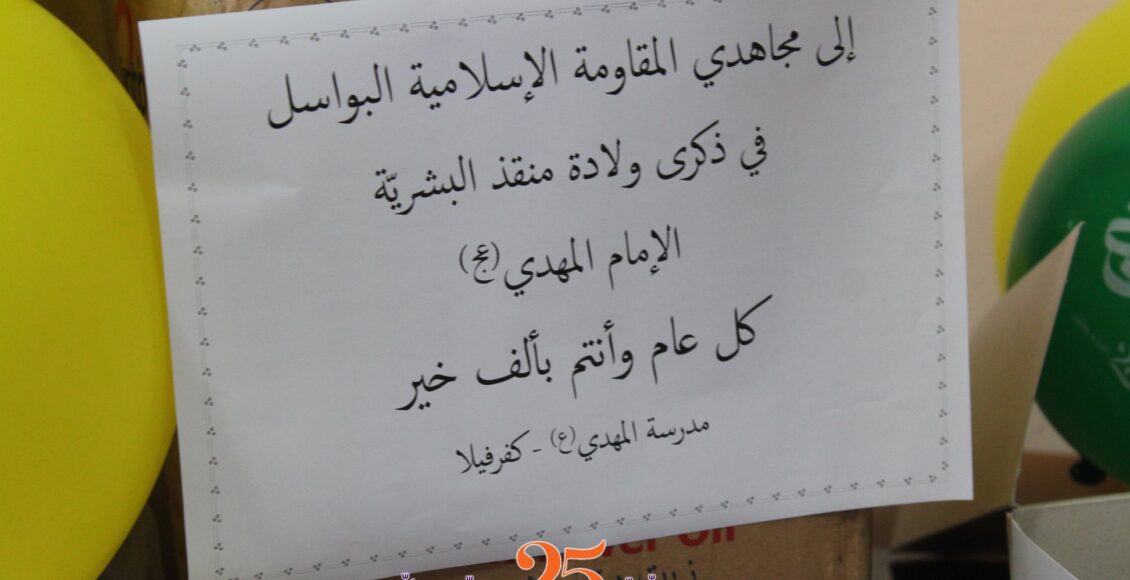 إلى مجاهدي المقاومة الإسلامية البواسل
في ذكرى ولادة منقذ البشريّة
الإمام المهدي (عج)
كل عام وأنتم بألف خير
مدرسة المهدي (ع) - كفرفيلا
25